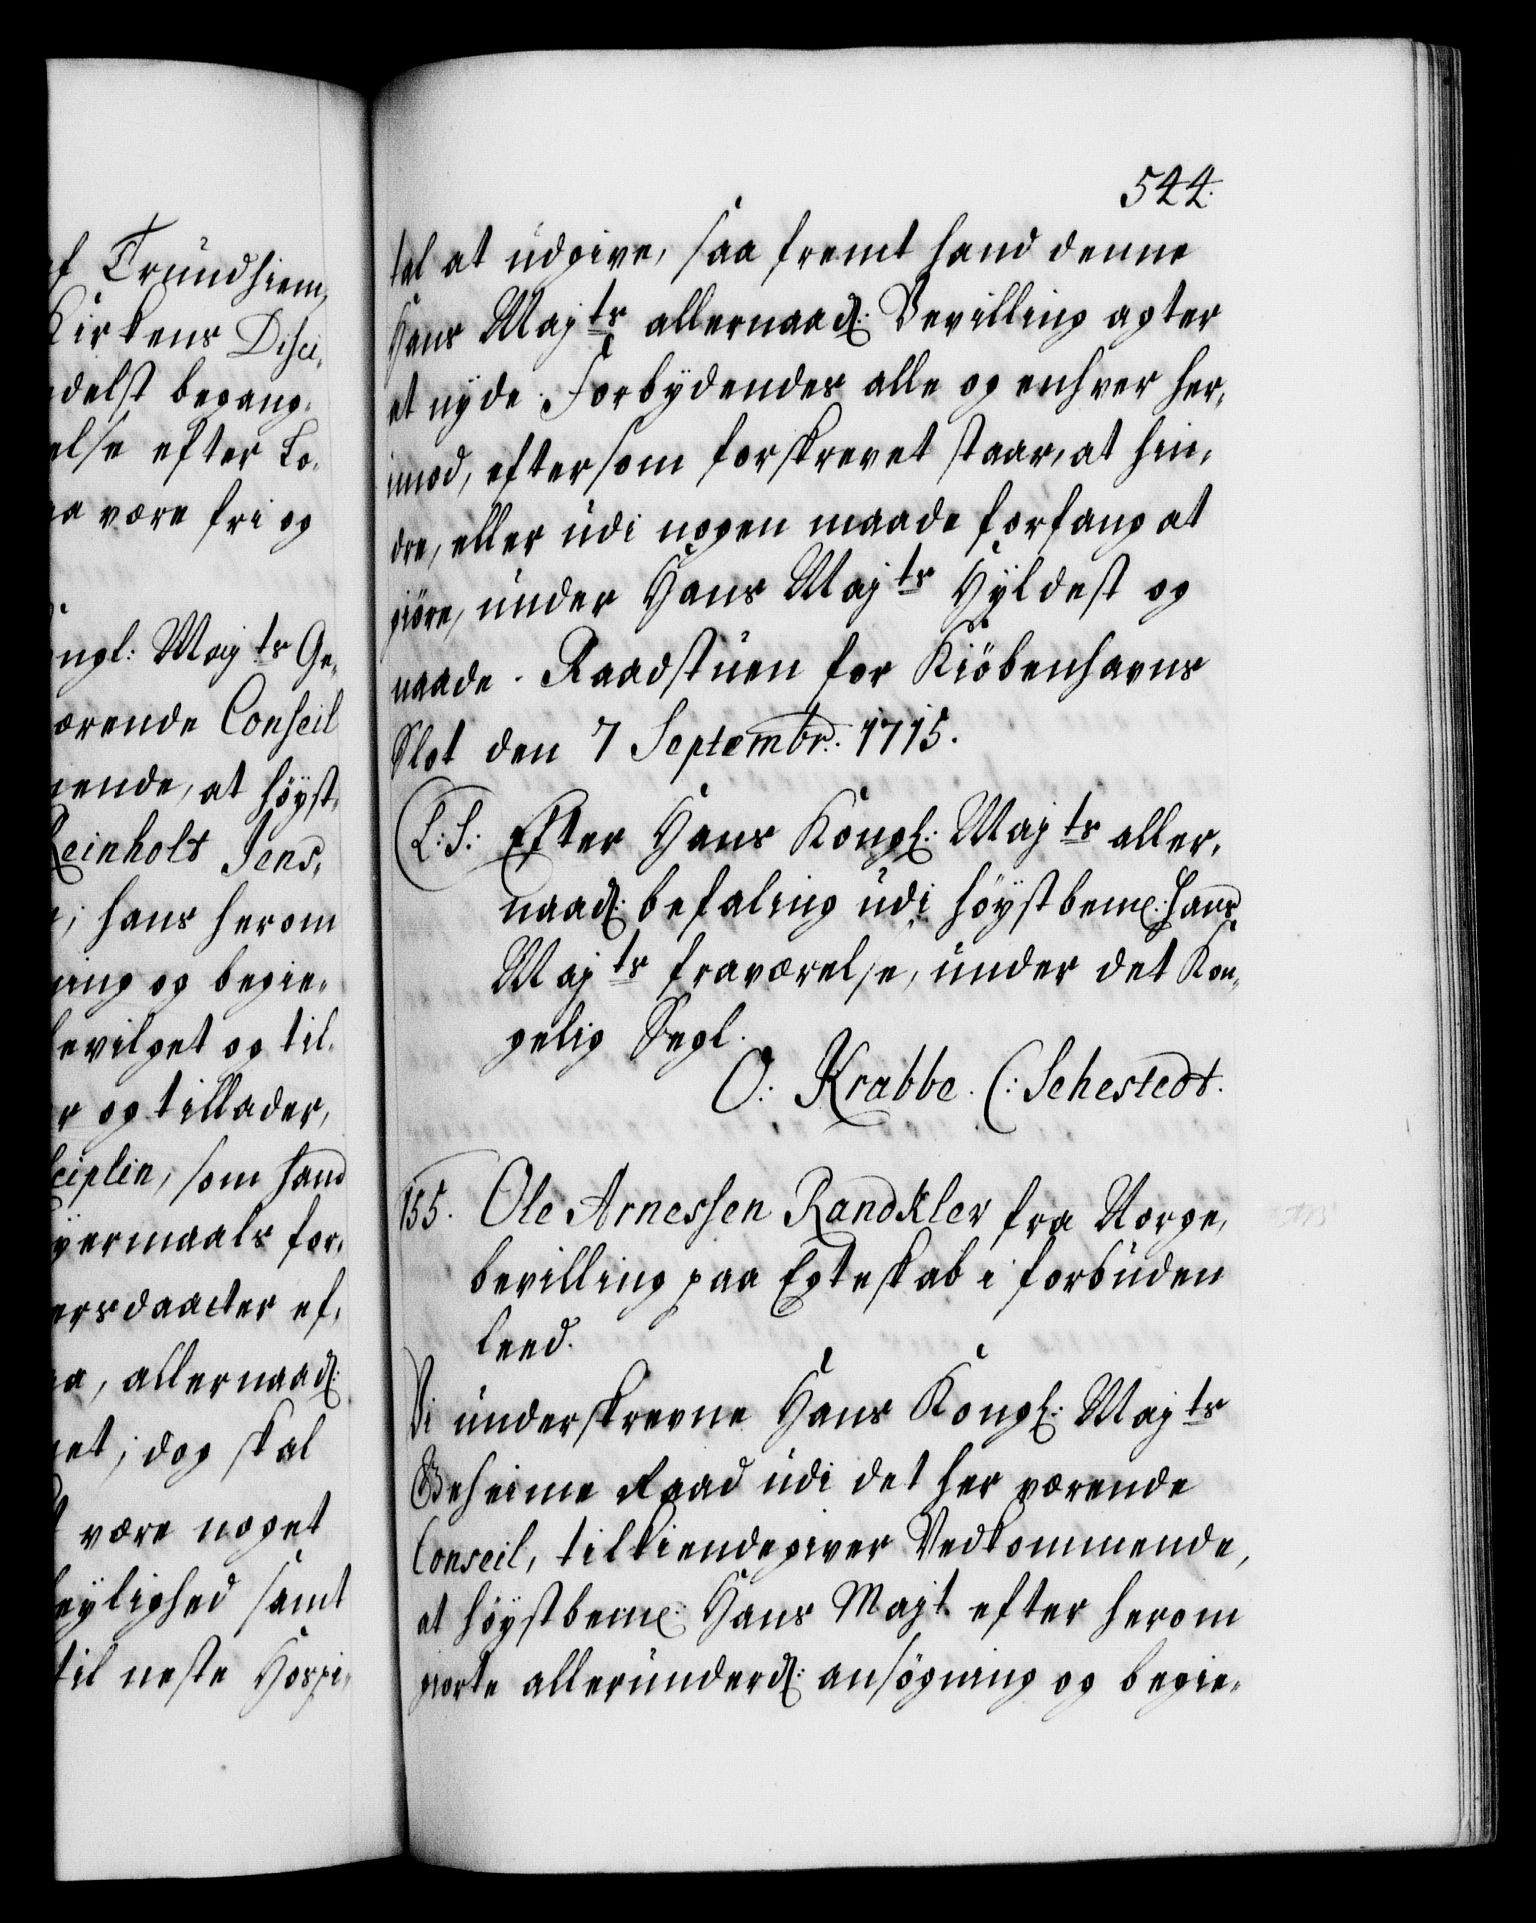 af Trundhiem,
Kirkens Disci-
delst begang-
else efter Lo-
være fri og
ngl: Majts Ge-
ærende Conseil
iende, at höyst-
Reinholt Jens-
hans herom
ning og begie-
bevilget og til-
r og tillader,
ciplin, som hand
yermaals for-
ersdaatter ef-
a, allernaad:
et; dog skal
være noget
leylighed samt
til neste Hospi-
544.
tal at udgive, saa fremt hand denne
Hans Majts allernaad: Bevilling agter
et nyde. Forbydendes alle og enhver her-
imod, eftersom forskrevet staar, at hin-
dre, eller udi nogen maade forfang at
giöre, under Hans Majts Hyldest og
naade. Raadstuen for Kiöbenhavns
Slot den 7 Septembr: 1715.
(L:S: Efter Hans Kongl: Majts aller-
naad: befaling udi höystbem: Hans
Majts fraværelse, under det Kon-
gelig Segl.
O: Krabbe. C: Sehestedt.
155. Ole Arnessen Randkler fra Norge,
bevilling paa Egteskab i forbuden
leed.
Vi underskrevne Hans Kongl: Majts
Geheime Raad udi det her værende
Conseil, tilkiendegiver Vedkommende,
at höystbem: Hans Majt efter herom
giorte allerunderd: ansögning og begie-